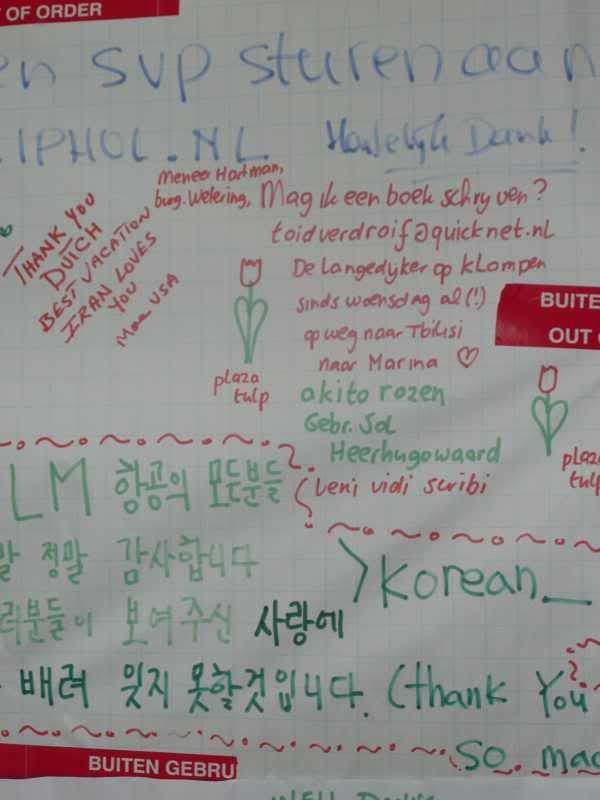 OF ORDER
en svp sturen aan
IPHOL.NL Hartelijk Dank!
THANK YOU
DUTCH
BEST VACATION
IRAN LOVES
YOU
USA
Meneer Hartman,
burg. Welering, Mag ik een boek schryven?
toidverdroif@quicknet.nl
De Langedyker op klompen
sinds woensdag al (!)
op weg naar Tbilisi
naar Marina ♡
akito rozen
Gebr. Sol
Heerhugowaard
(veni vidi scribi
plaza
tulp
BUITE
OUT
plaza
tu
LM 항공의 모든분들
말 정말 감사합니다
러분들이 보여주신 사랑에
배려 잊지 못할것입니다. (thank You
>Korean_
so mac
BUITEN GEBRU